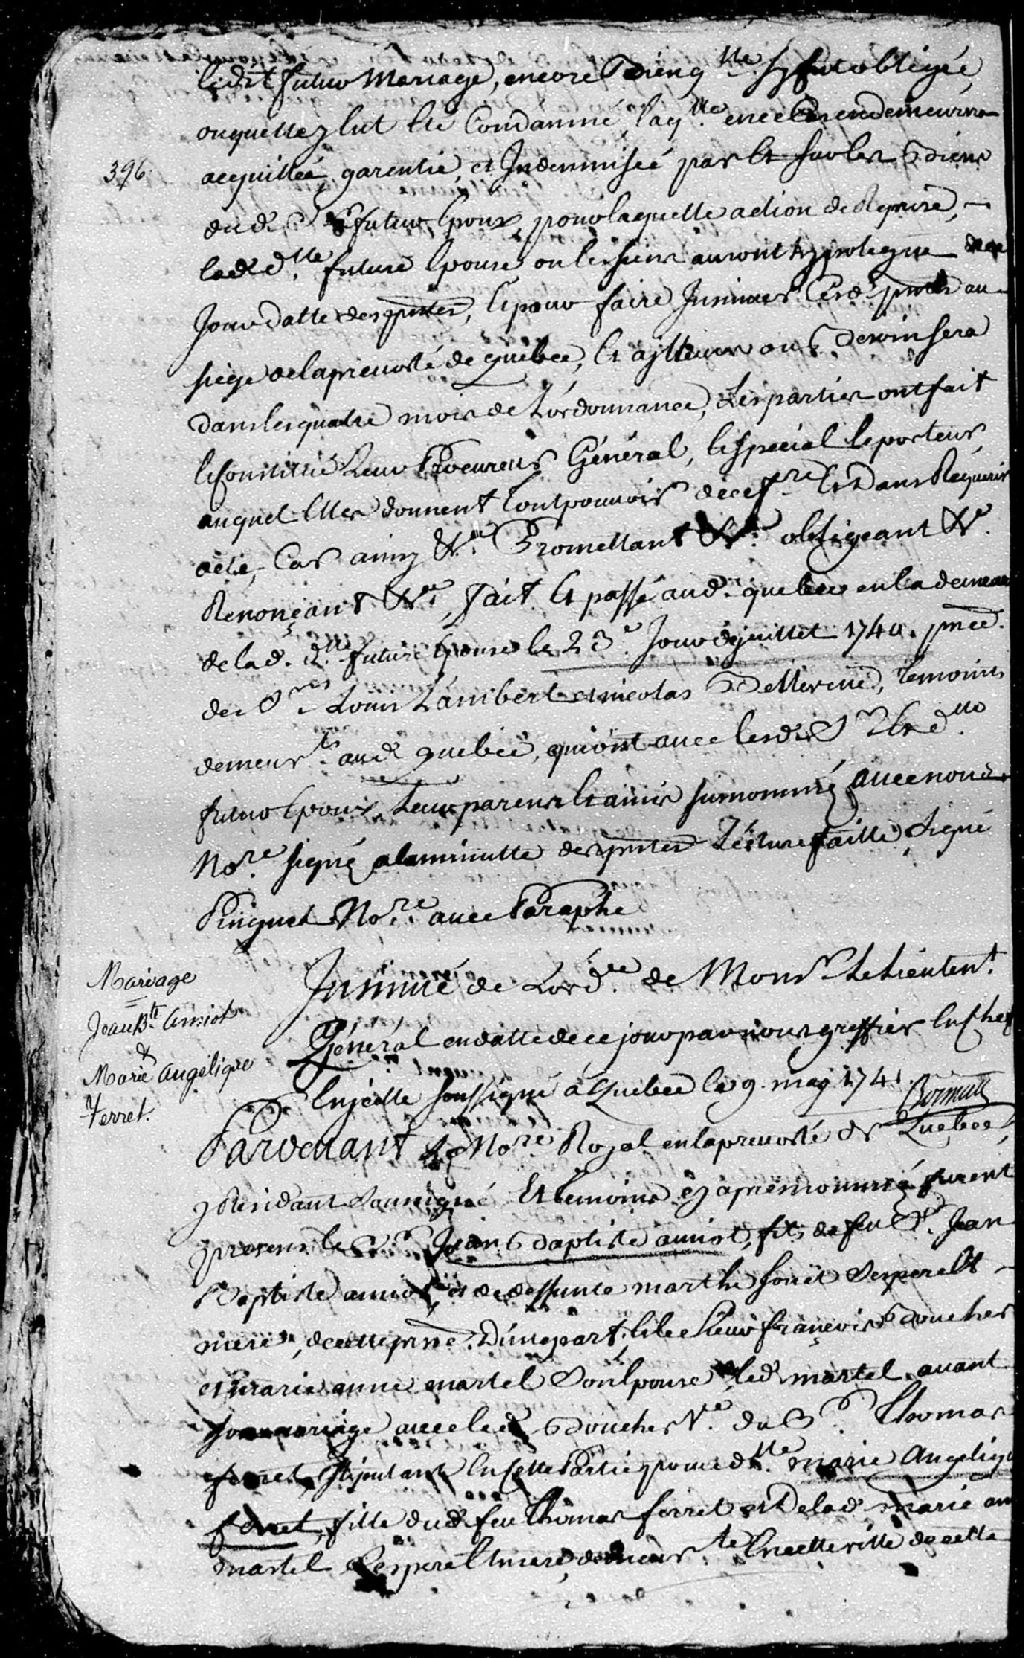 ledit futur Mariage, encore bien q.lle sy fut obligée,
ou quelle y fut Eté Condamné, lad.lle en
acquittée, garentie, et Indemnisée par Et sur les Biens
396
dud. Sr futur Epoux, pour laquelle action de Reprise,
lad. d.lle future Epouse ou les siens auront hypoteque de ce
Jour datte des pntes, Et pour faire Insinuer Cesd. pntes au
siege de la prevosté de quebec, Et ailleurs ou Besoin sera
dans les quatre mois de L'ordonnance, Les parties ont fait
Et Constitué Leur Procureur Général, Et special le porteur
auquel Elles donnent tout pouvoir de ce f.re Et d'en Requerir
acte, Car ainsy &a Promettant &a obligeant &a
Renonçant &a, fait Et passé aud. quebec en la demeure
de lad. d.lle future Epouse le 23e Jour de juillet 1740. pnce
des Srs Louis Lambert et nicolas Bellevüe, temoins
demeur.ts aud. quebec, qui ont avec lesd. Sr Et d.lle
futurs Epoux, Leurs parens Et amis surnommés avec nous
No.re signé a la minutte des pntes Lecture faitte, Signé
Pinguet No.re avec Paraphe
Mariage
Jean Bte Amiot
&
Marie Angelique
Ferret.
Insinué de L'ord.ce de Monsr Le Lieuten.t
Général en datte de ce jour par nous greffier En Chef
En icelle soussigné a Quebec le 9. may 1741. Boisseau
Pardevant Le No.re Royal en la prevosté de Quebec,
y Residant Soussigné Et temoins cy aprés nommés furent
presens le Sr Jean Baptiste amiot, fils de feu Sr Jean
Baptiste amiot, et de deffunte marthe Ses pere Et
mere, de cette D'une part, Et le Sieur françois Boucher
et marie anne martel Son Epouse, lad. martel avant
son mariage avec led. Boucher Ve du Sr Thomas
ferret, Stipulant En Cette Partie pour d.lle marie Angelique
ferret, fille dud. feu Thomas ferret et De lad. marie anne
martel Ses pere Et mere, demeur.te En cette ville de cette